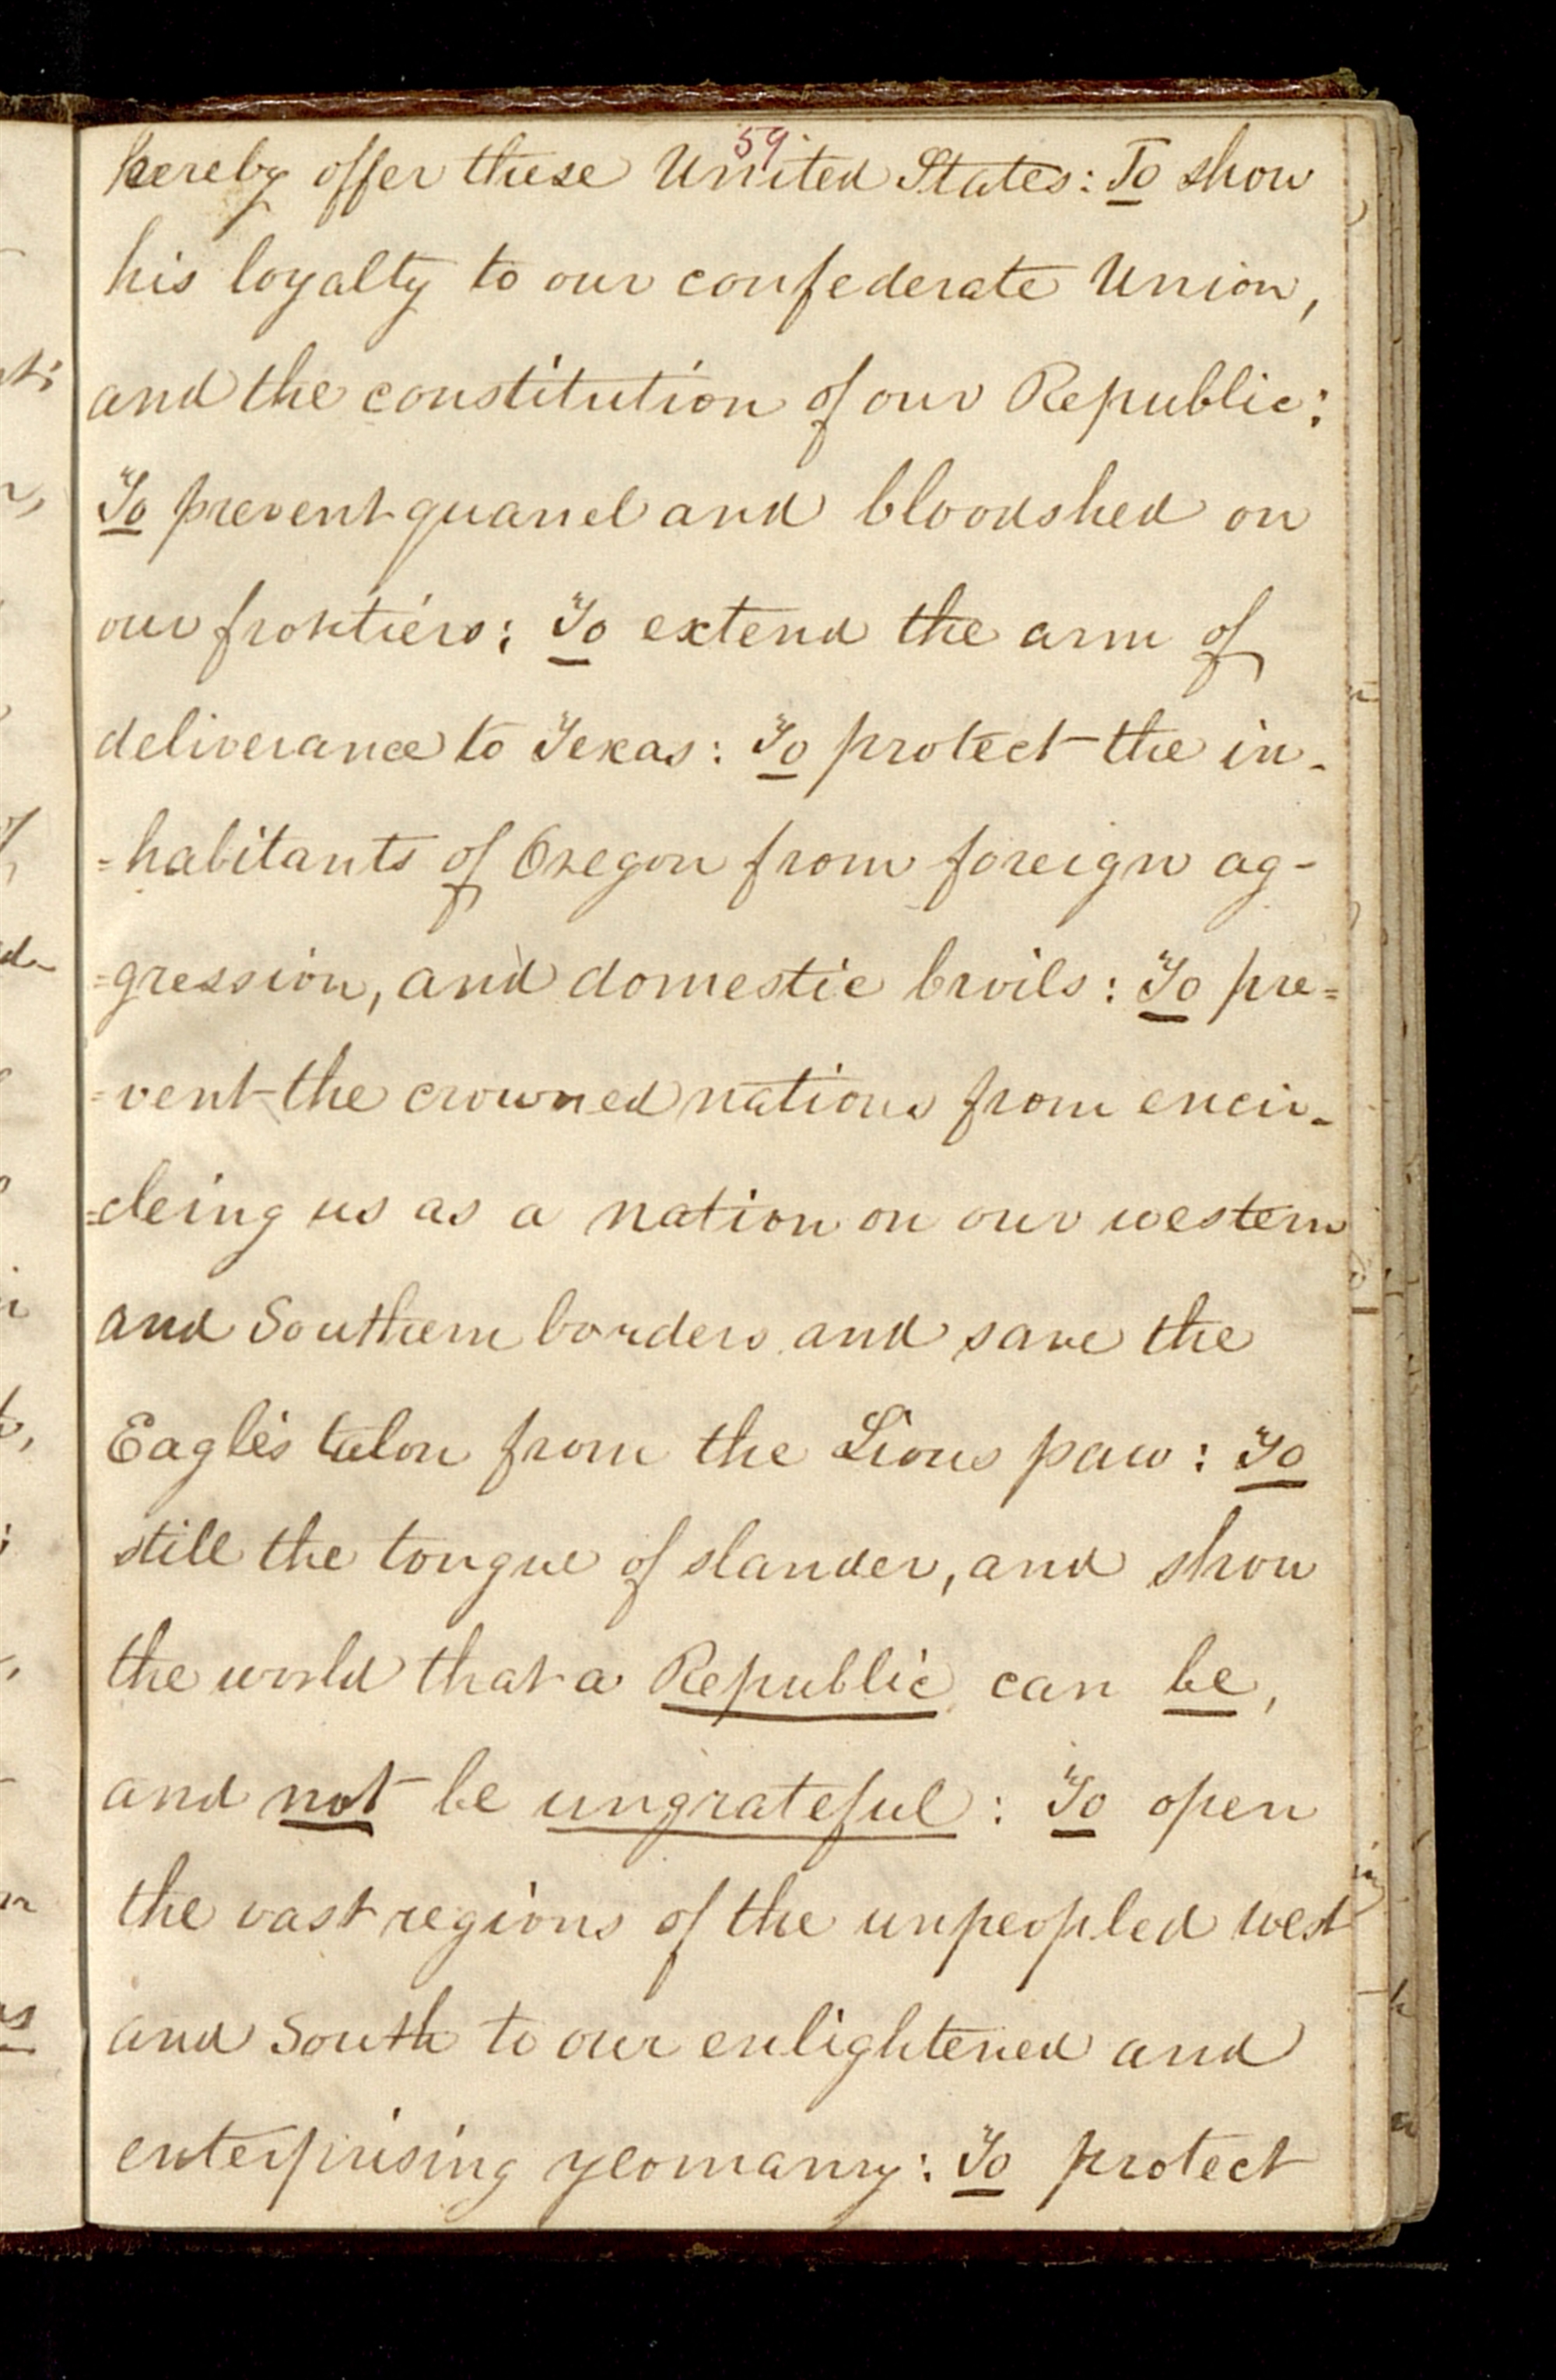 59
hereby offer these United States: To show
his loyalty to our confederate Union,
and the constitution of our Republic:
To prevent quarrel and bloodshed on
our frontiers; To extend the arm of
deliverance to Texas: To protect the in-
=habitants of Oregon from foreign ag-
=gression, and domestic broils: To pre=
=vent the crowned nations from encir-
=cleing us as a nation on our western
and Southern borders and save the
Eagle's talon from the Lions paw: To
still the tongue of slander, and show
the world that a Republic can be,
and not be ungrateful: To open
the vast regions of the unpeopled west
and South to our enlightened and
enterprising yeomanry: To protect